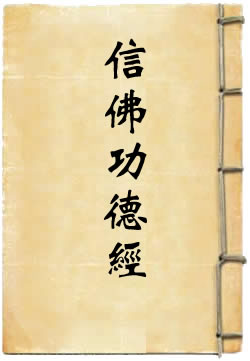 信佛功德經